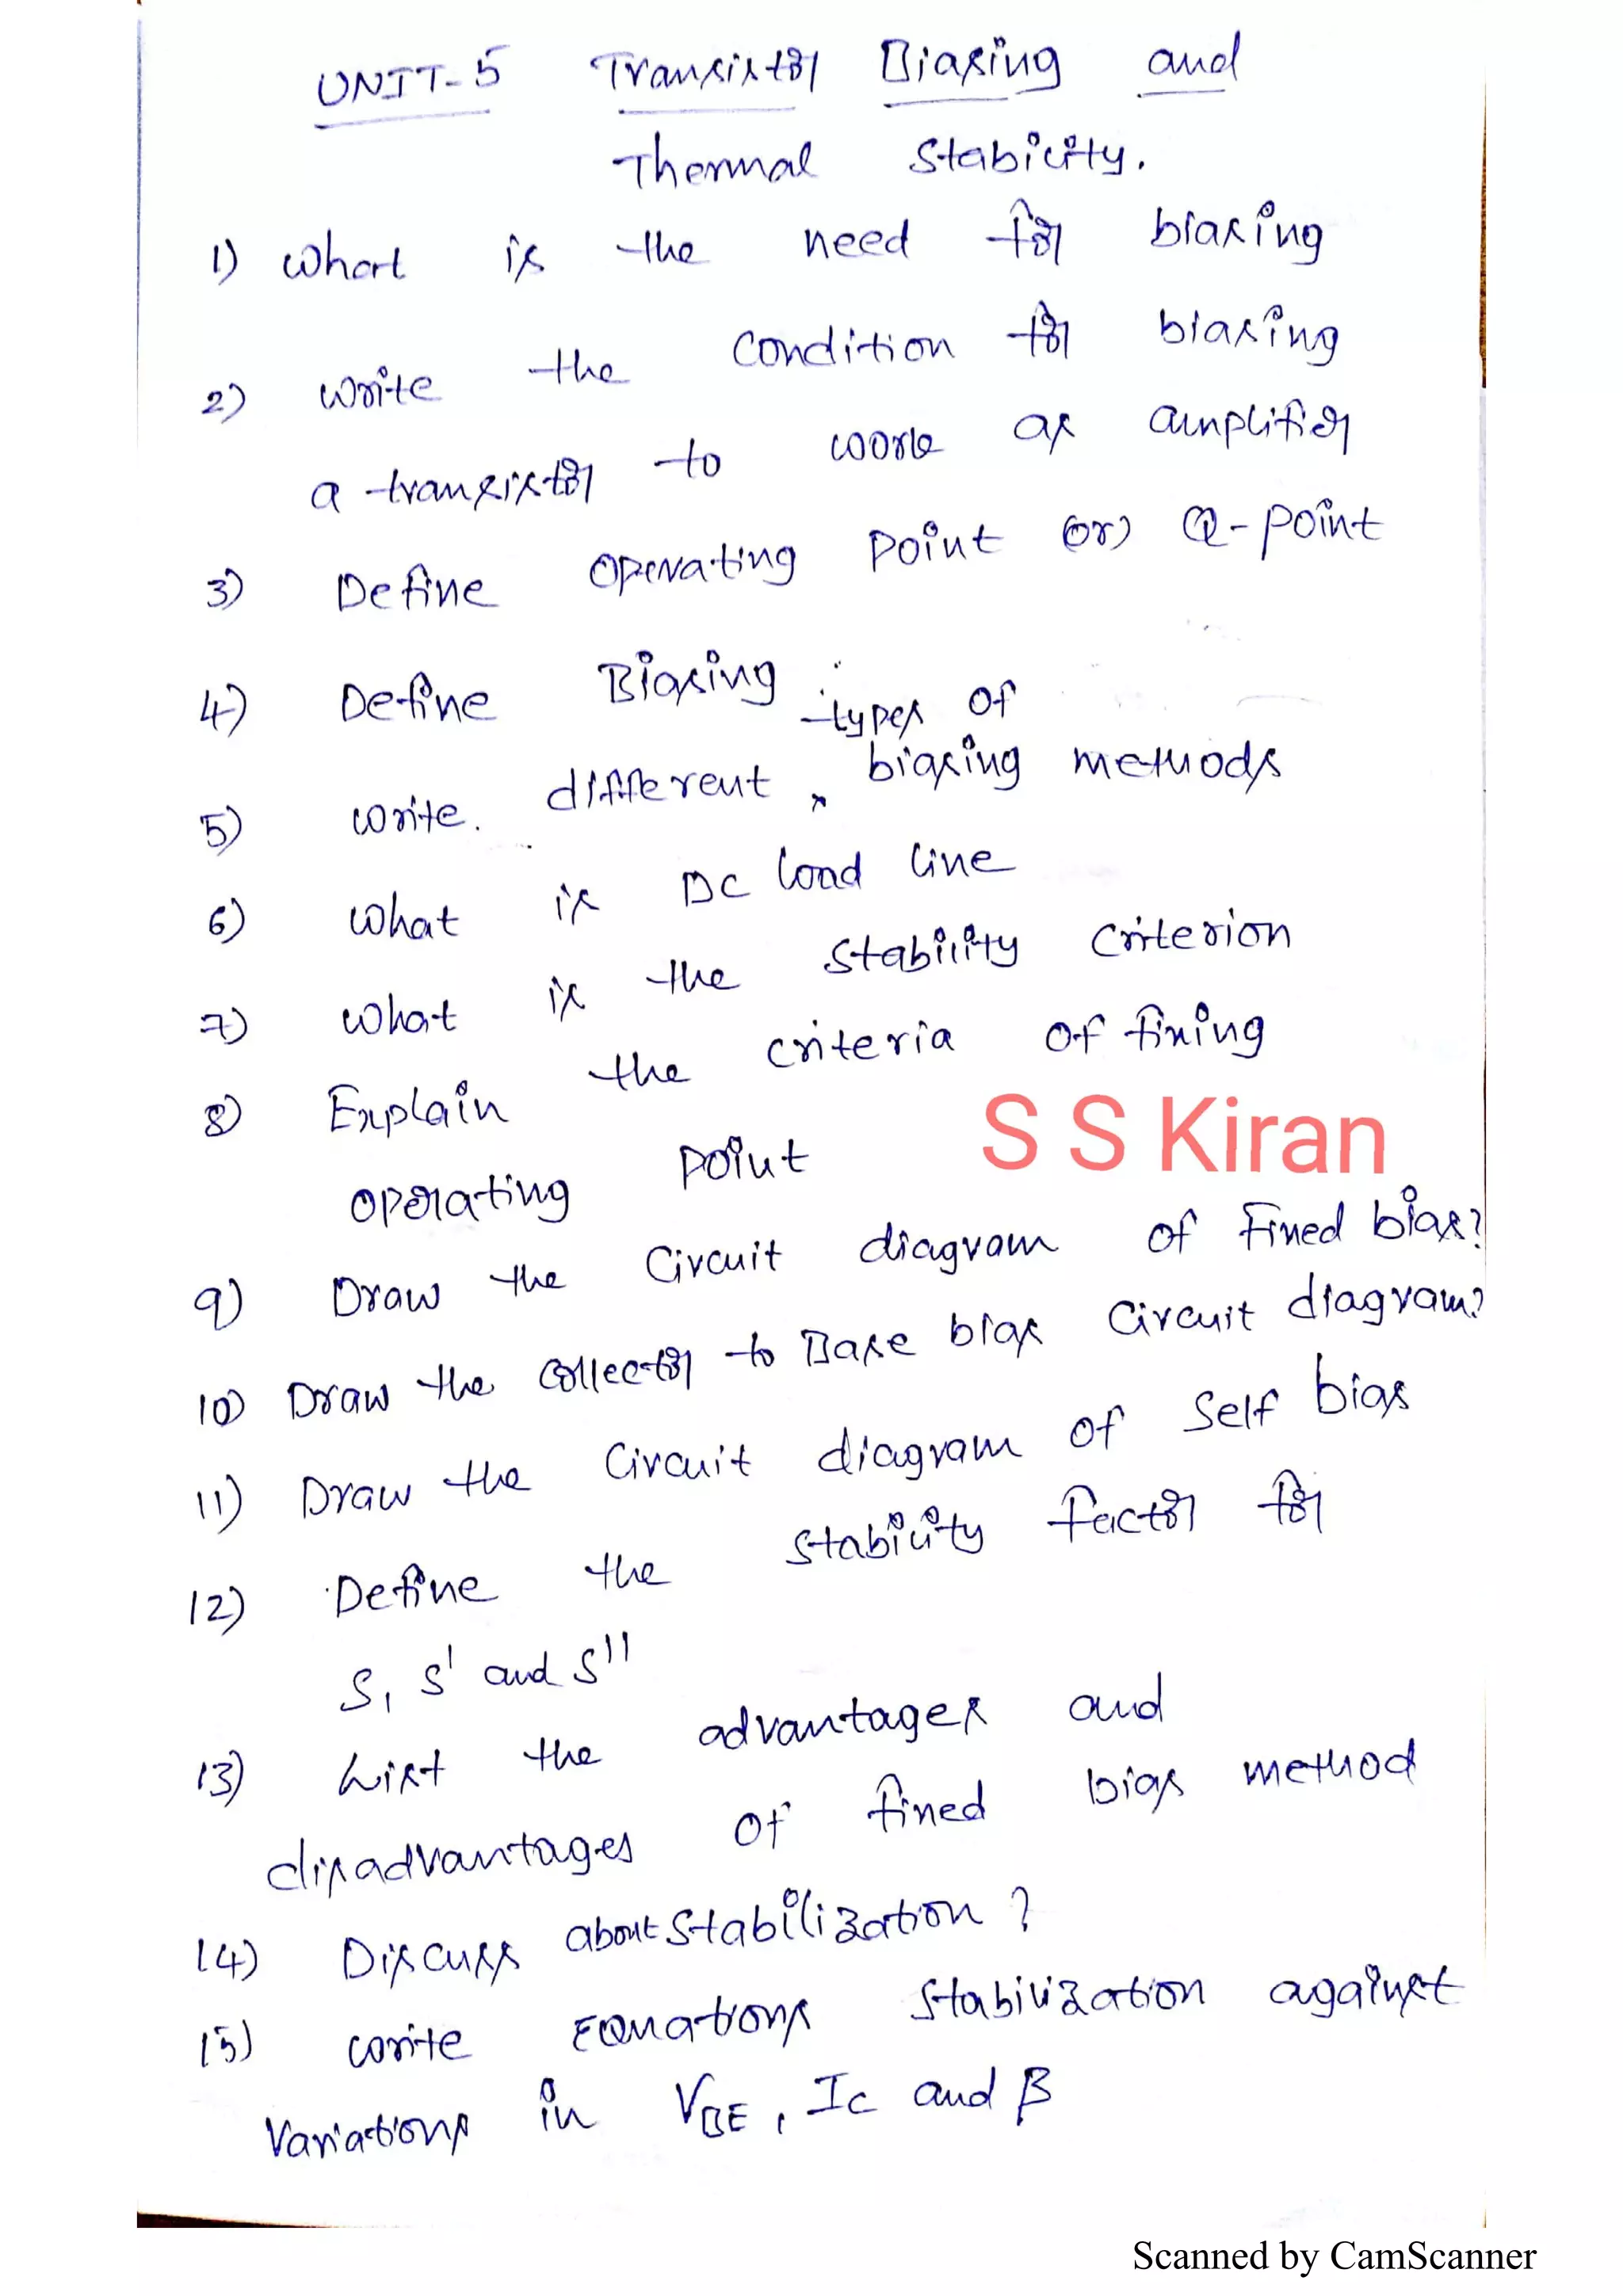 UNIT-5 Transistor Biasing and
Thermal Stability.
1) What is the need for biasing
2) Write the condition for biasing
a transistor to work as amplifier
3) Define Operating Point (or) Q-point
4) Define Biasing
5) Write. different types of biasing methods
6) What is DC load line
7) What is the stability criterion
8) Explain the criteria of fixing
operating point
S S Kiran
9) Draw the Circuit diagram of Fixed bias?
10) Draw the collector to Base bias Circuit diagram?
11) Draw the Circuit diagram of Self bias
12) Define the stability factor for
S, S' and S''
13) List the advantages and
disadvantages of fixed bias method
14) Discuss about Stabilization?
15) write Equations stabilization against
Variations in VBE, IC and β
Scanned by CamScanner